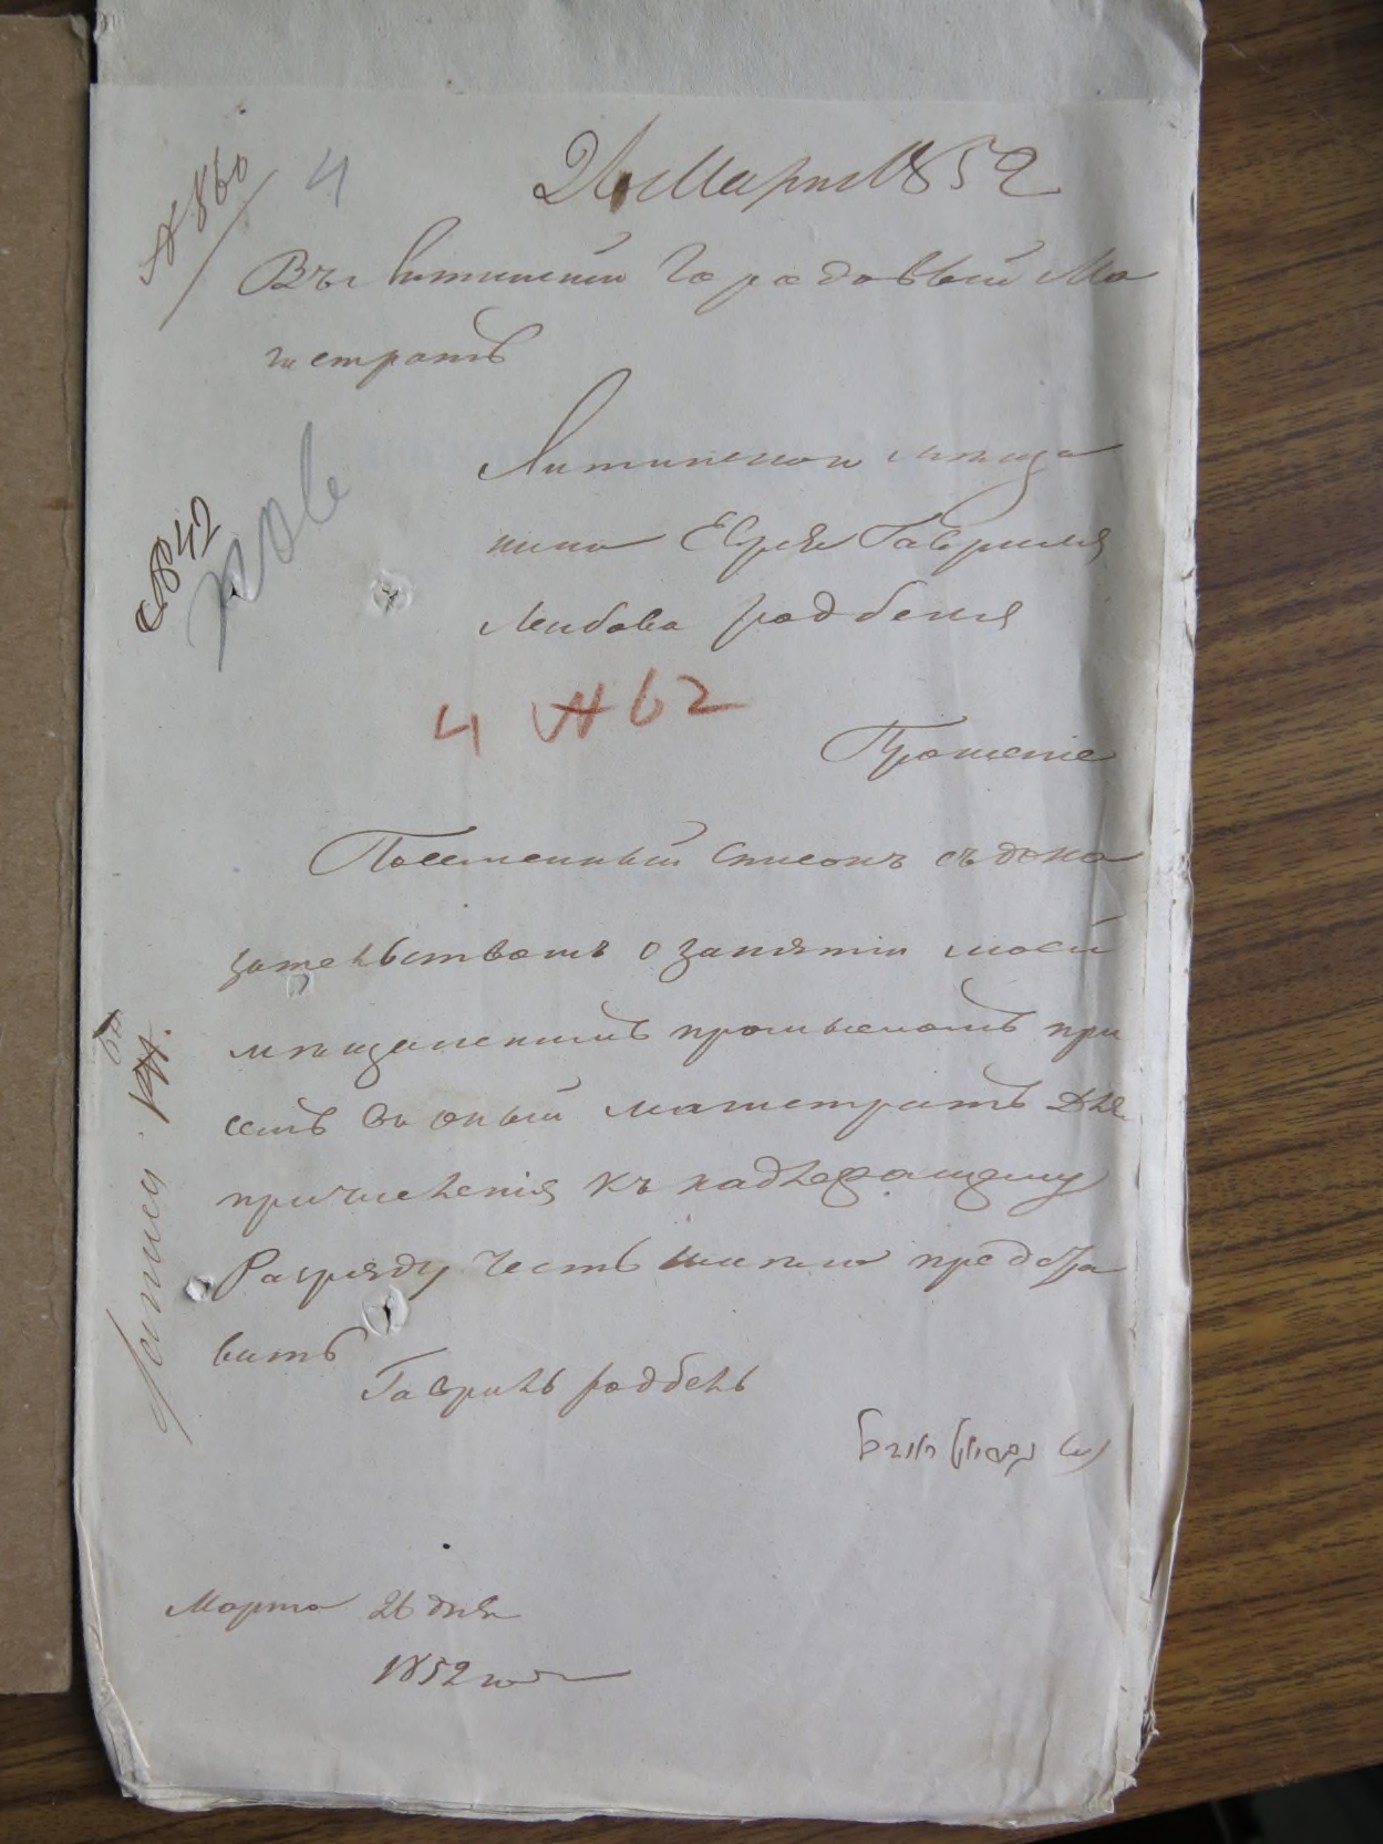 № 860
4
26 Марта 1852
Въ Литинский Городовый Ма
гистратъ
Литинского мѣща
нина Еврея Гавриля
Лейбова Годбеля
№ 42
4 № 62
Прошение
Посемейный списокъ съ дока
зательствомъ о занятіи моей
мѣщанскимъ промысломъ при
семъ въ оный магистратъ для
причисленія къ надлежащему
Разряду честь имѣю предста
вить
Гавриль Годбель
Марта 26 дня
1852 года